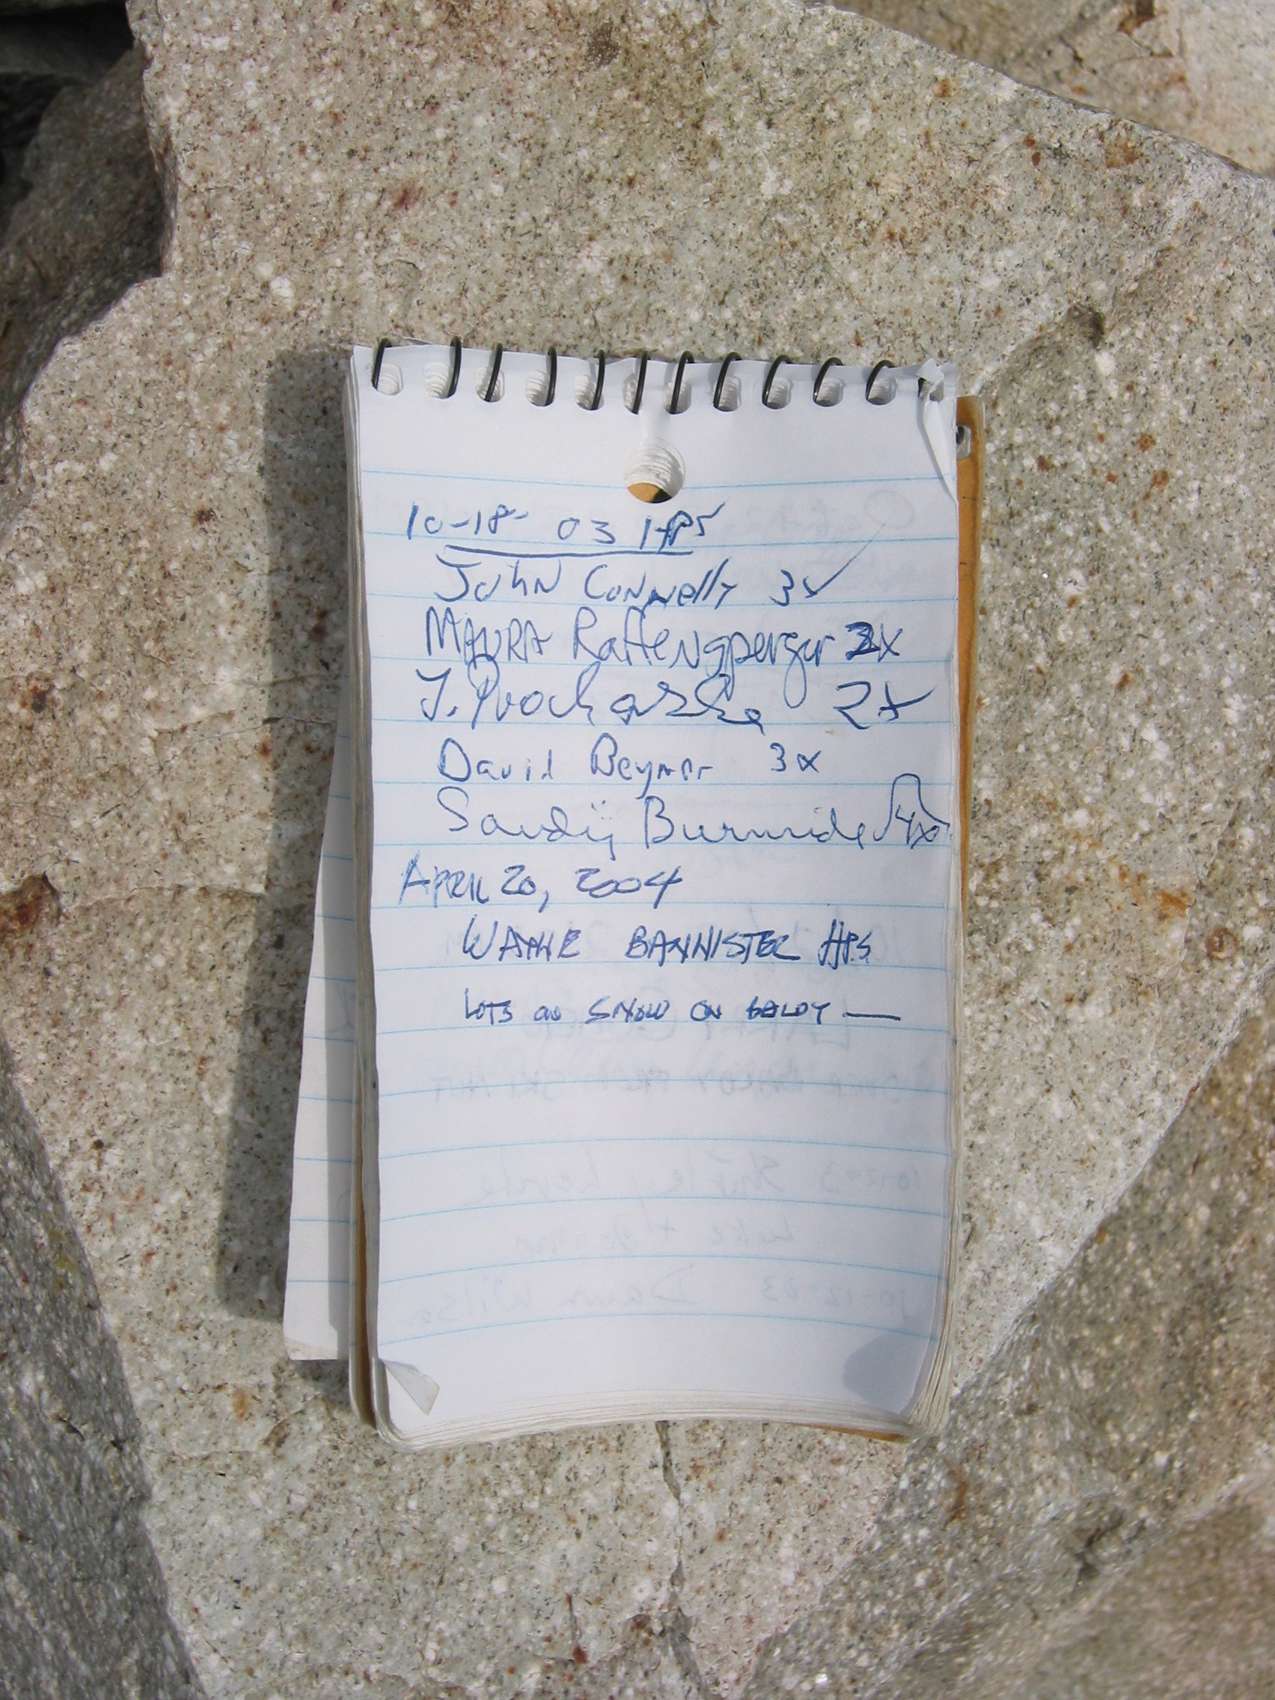 10-18-03 HPS
John Connelly 3x
Maura Raffensperger 2x
J. Prochaska 2x
David Beymer 3x
Sandy Burnside 4x
April 20, 2004
WAYNE BANNISTER HPS
LOTS OF SNOW ON BALDY —